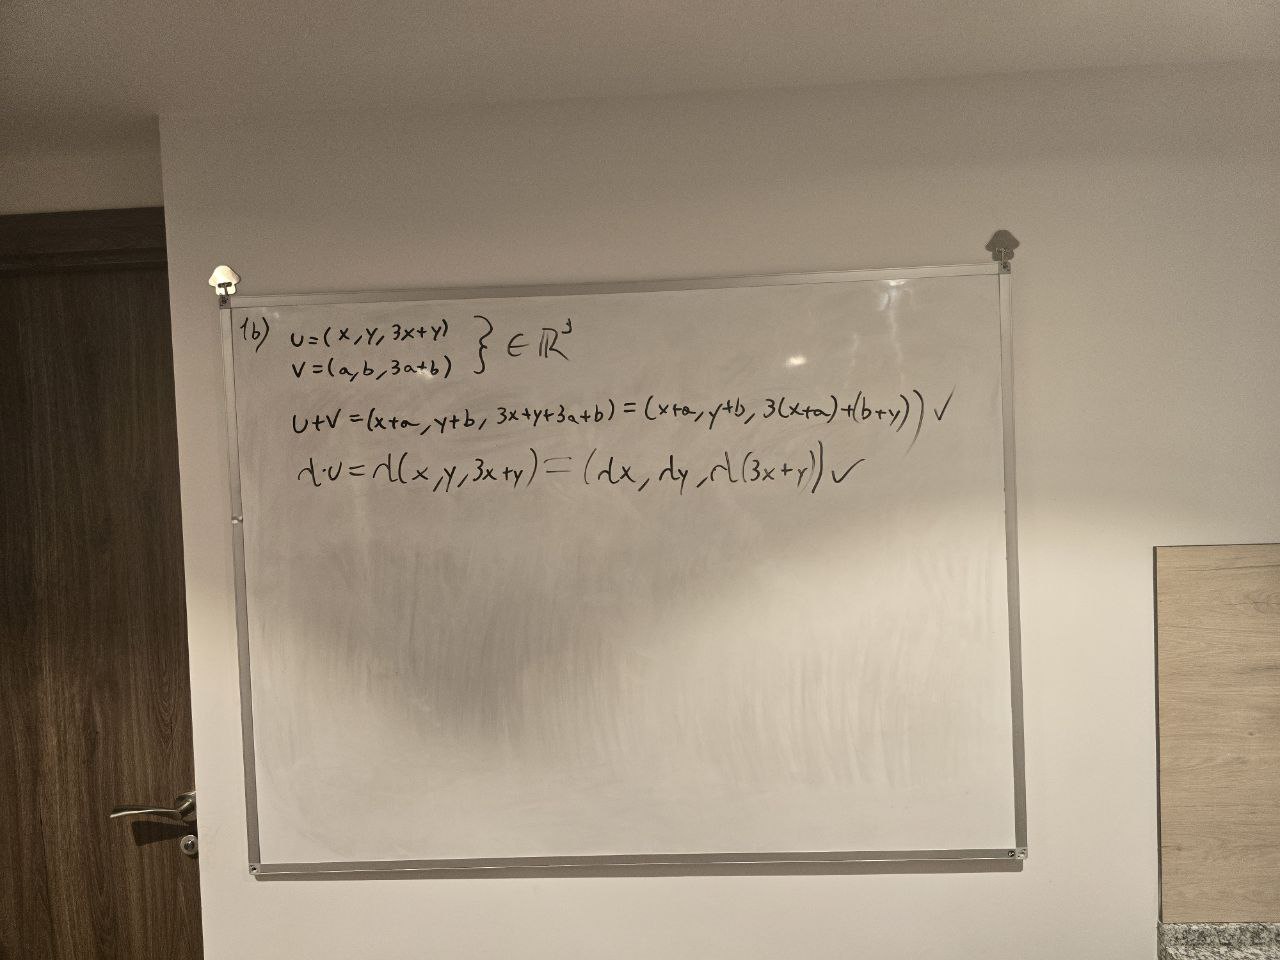 1b) u=(x,y,3x+y) } ∈ ℝ³
v=(a,b,3a+b)
u+v=(x+a,y+b,3x+y+3a+b)=(x+a,y+b,3(x+a)+(b+y)) ✓
λ·u=λ(x,y,3x+y)=(λx,λy,λ(3x+y)) ✓